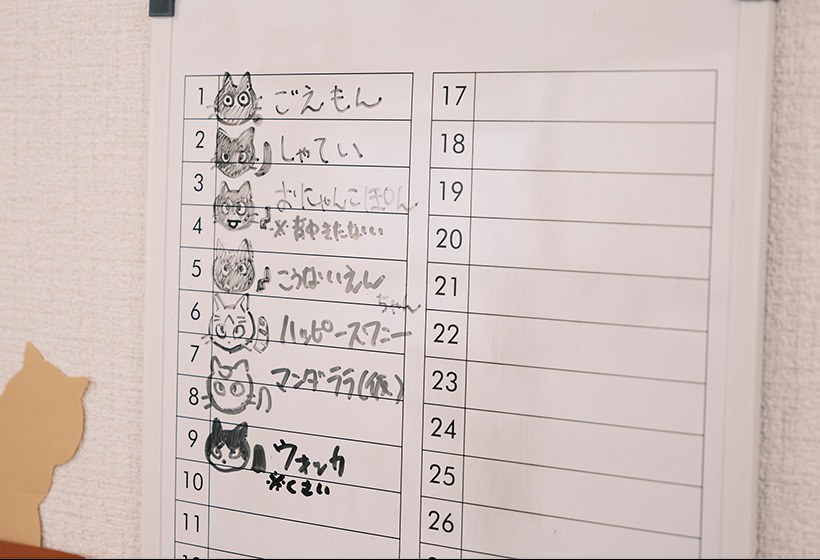 1 ごえもん
2 しゃてい
3 おにゃんこぽん
4 ※背中きたない…
5 こうないえん
6 ちゃん
ハッピースワニー
7
8 マンダララ(仮)
9 ウォッカ
10 ※くさい
11
17
18
19
20
21
22
23
24
25
26